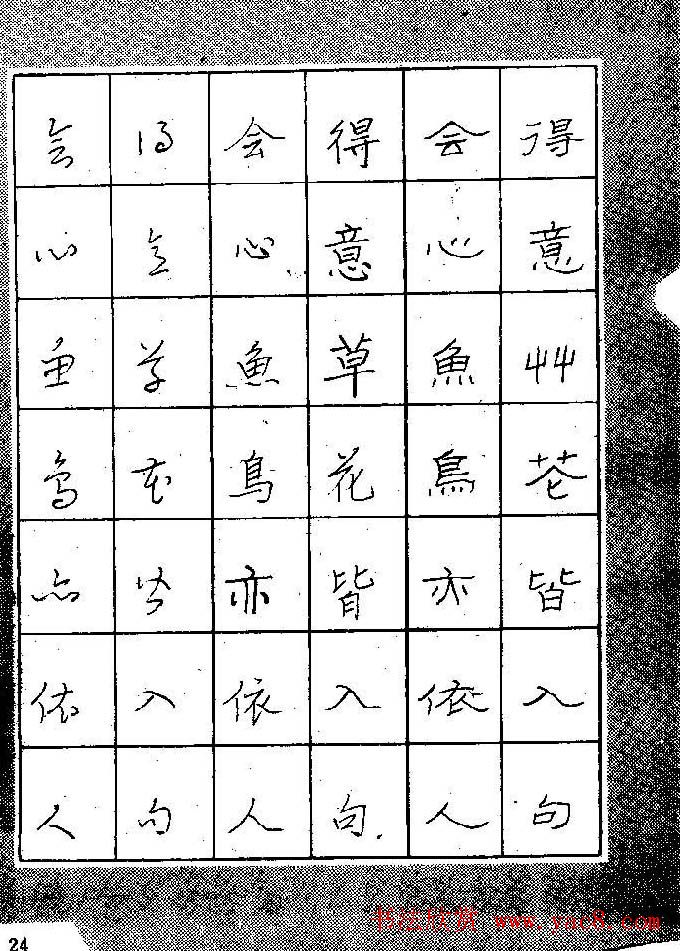 得意草花皆入句
会心魚鳥亦依人
得意草花皆入句
会心魚鳥亦依人
得意草花皆入句
会心魚鳥亦依人
24
www.yac8.com